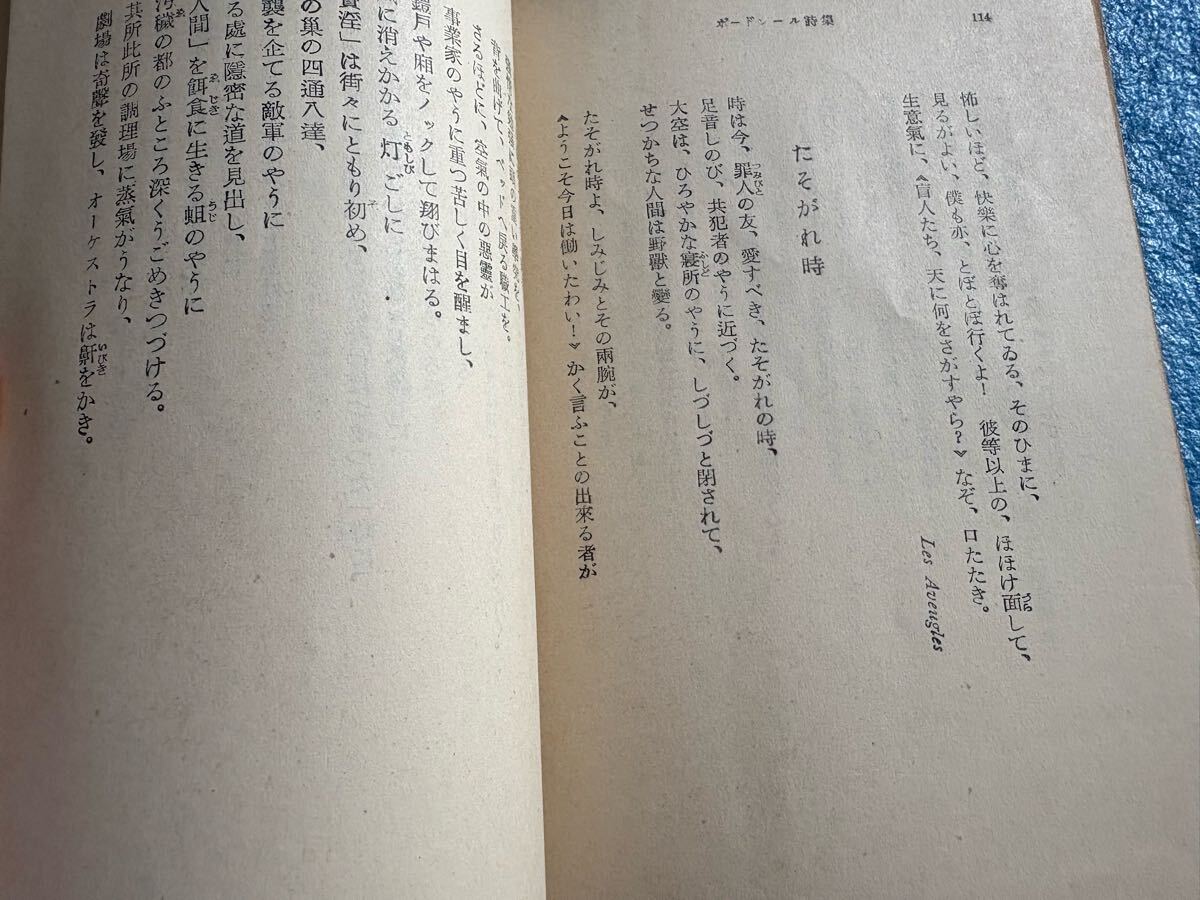 114
ボードレール詩集
怖しいほど、快樂に心を奪はれてゐる、そのひまに、
見るがよい、僕も亦、とぼとぼ行くよ! 彼等以上の、ほほけ面して、
生意氣に、《盲人たち、天に何をさがすやら?》なぞ、口たたき。
Les Aveugles
たそがれ時
時は今、罪人の友、愛すべき、たそがれの時、
足音しのび、共犯者のやうに近づく。
大空は、ひろやかな寢所のやうに、しづしづと閉されて、
せつかちな人間は野獸と變る。
たそがれ時よ、しみじみとその兩腕が、
《ようこそ今日は働いたわい!》かく言ふことの出來る者が
背を曲げて、ベッドへ戻る職工を。
さるほどに、空氣の中の惡靈が
事業家のやうに重つ苦しく目を醒まし、
鎧戸や廂をノックして翔びまはる。
に消えかかる灯ごしに
賣淫」は街々にともり初め、
の巢の四通八達、
襲を企てる敵軍のやうに
る處に隱密な道を見出し、
人間」を餌食に生きる蛆のやうに
汚穢の都のふところ深くうごめきつづける。
其所此所の調理場に蒸氣がうなり、
劇場は奇聲を發し、オーケストラは鼾をかき。